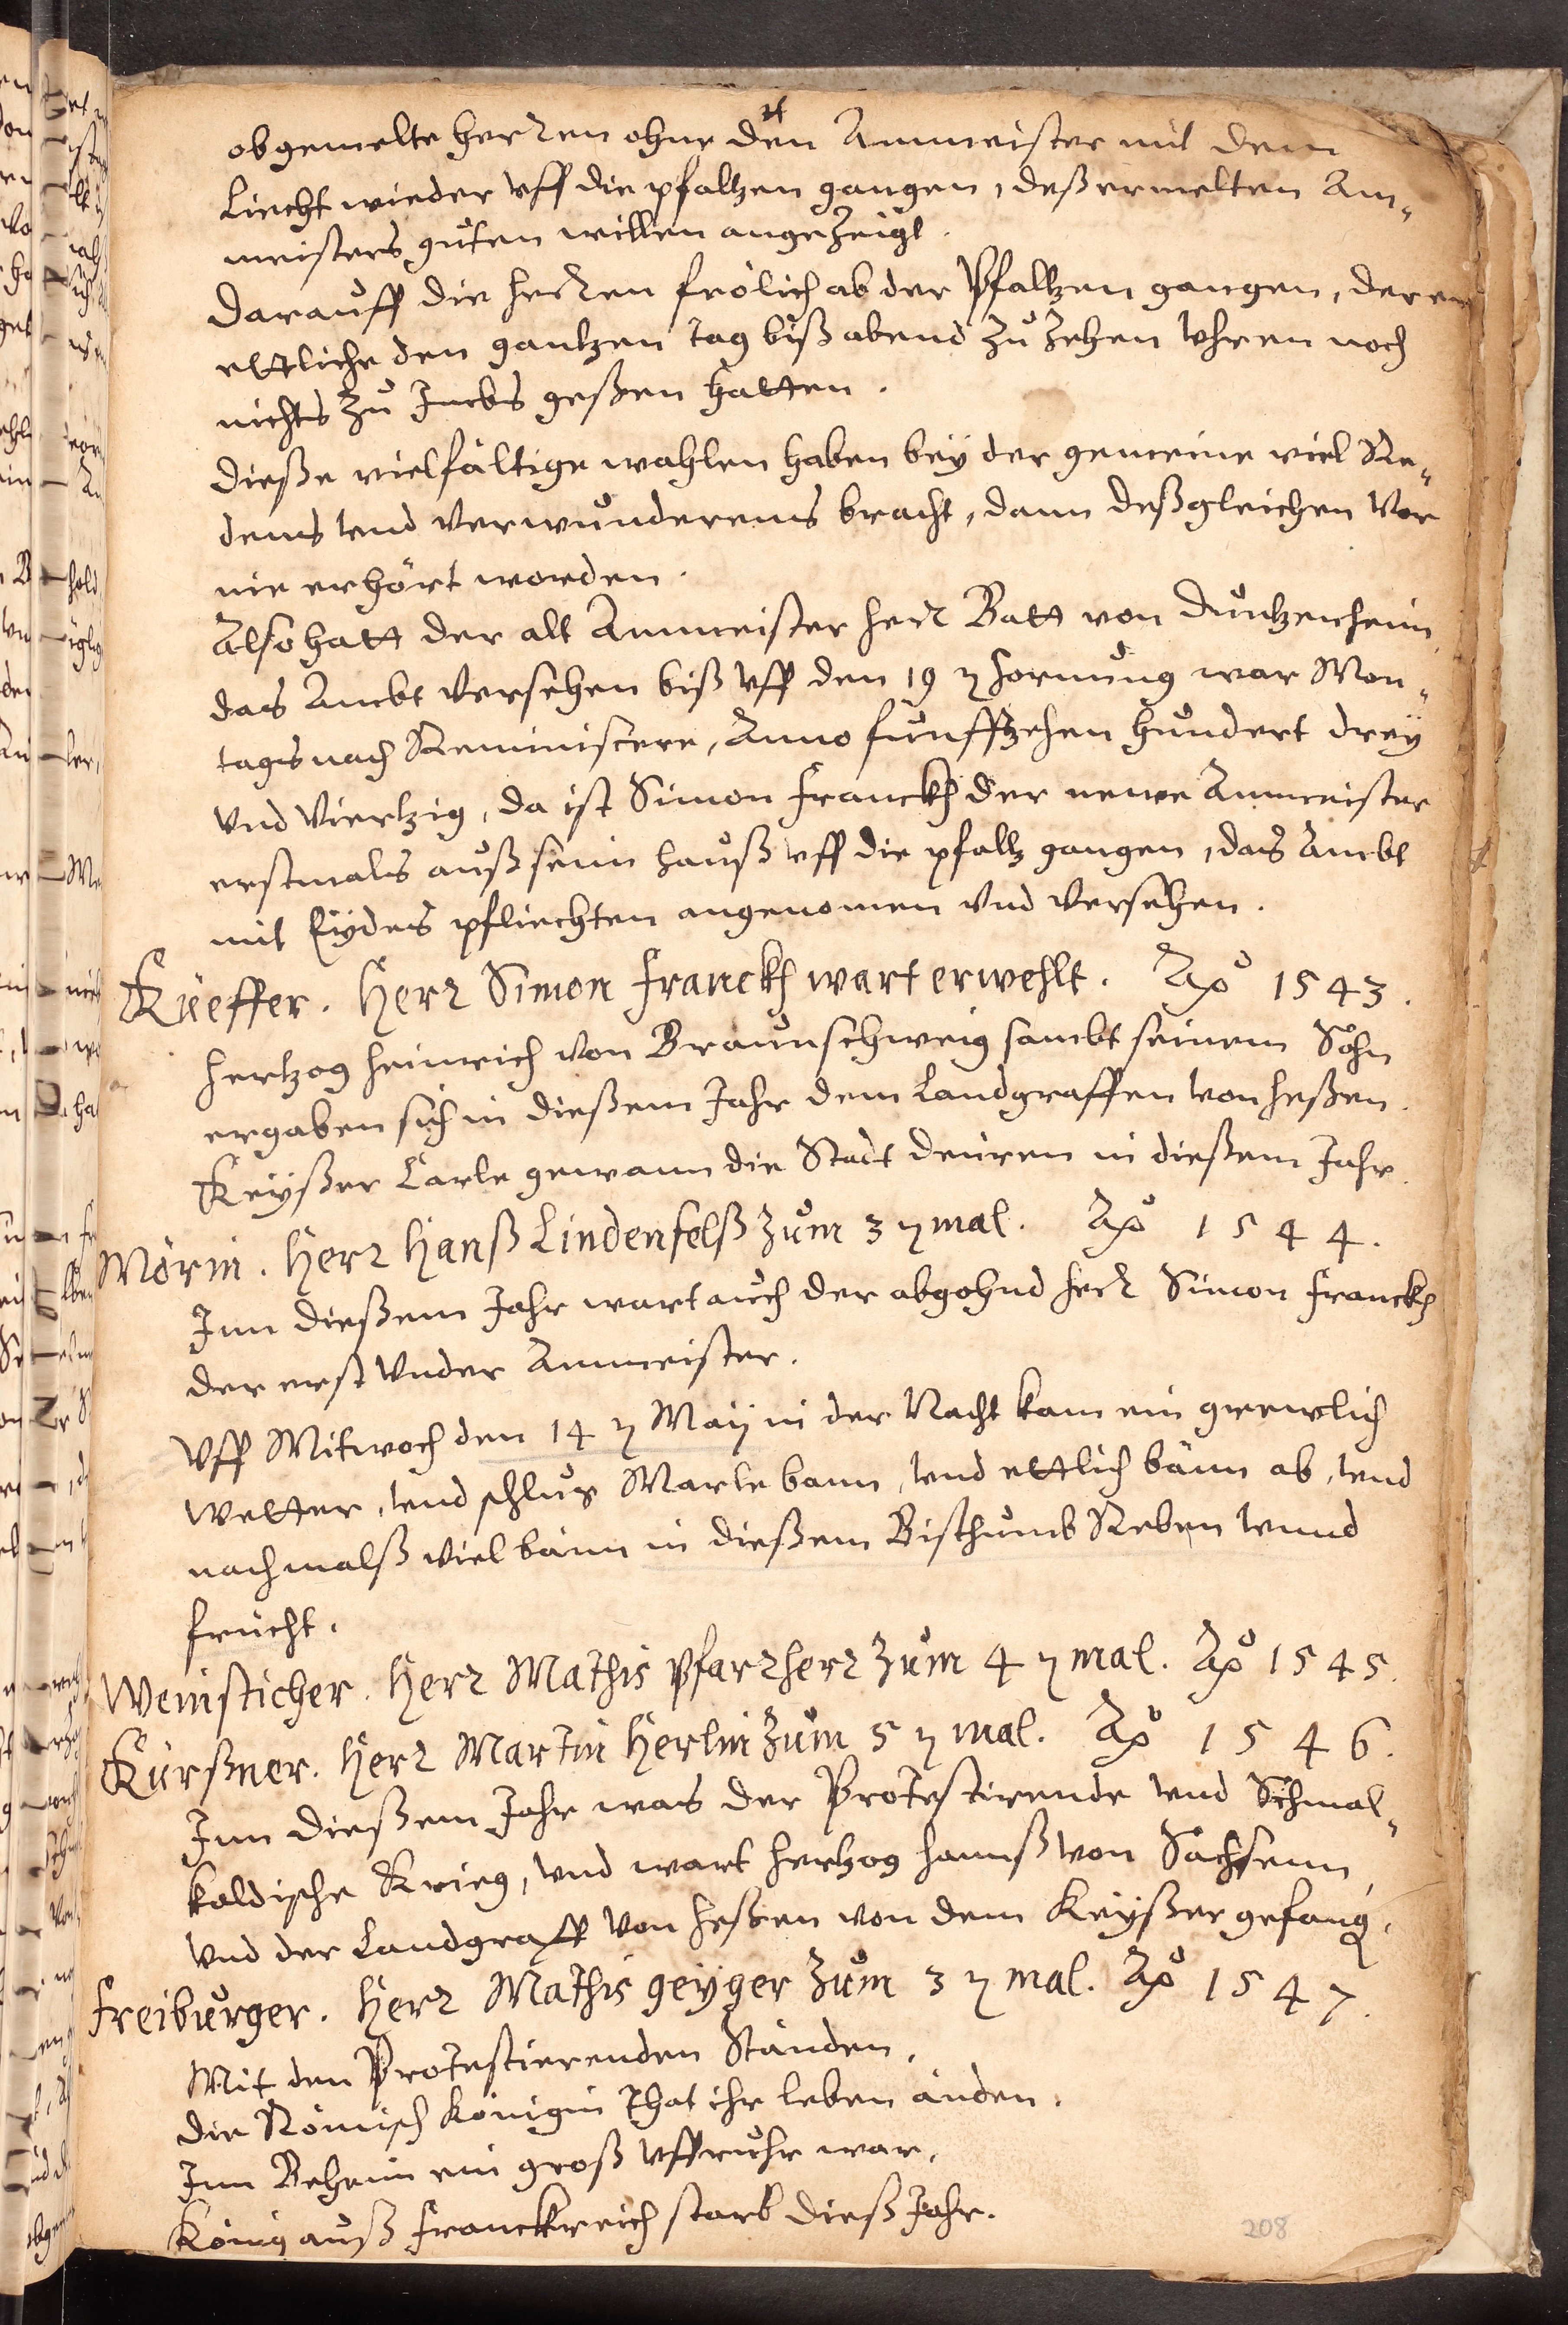 obgemelte herren ohne den Ammeister mit dem
Liecht wieder vff die pfaltzen gangen, deß ermelten Am-
meisters guten willen angezeigt.
Darauff die herren frölich ab der Pfaltzen gangen, deren
ettliche den gantzen tag biß abend zu zehen Vhren noch
nichts zu Jmbs geßen hatten.
Dieße vielfältige wahlen haben bey der gemeine viel Re-
dens vnd verwunderens bracht, dann deßgleichen vor
nie erhört worden.
Also hatt der alt Ammeister herr Batt von Duntzenheim
das Ambt versehen biß vff den 19 n hornung war Mon-
tags nach Reminiscere, Anno funffzehen hundert drey
vnd viertzig, da ist Simon Franckh der newe Ammeister
erstmals auß sein hauß vff die pfaltz gangen, das Ambt
mit Eydes pfliechten angenomen vnd versehen.
Küeffer. Herr Simon Franckh wart erwehlt. Ao 1543.
Hertzog Heinrich von Braunschweig sambt seinem Sohn
ergaben sich in dießem Jahr dem Landgraffen von Heßen.
Keyßer Carle gewann die Stadt Deuren in dießem Jahr.
Mörin. Herr Hanß Lindenfelß zum 3 n mal. Ao 1544.
Jnn dießem Jahr wart auch der abgohnd herr Simon Franckh
der erst vnder Ammeister.
Vff Mitwoch den 14 n Maij in der Nacht kam ein grewlich
wetter, vnd schlug Marlebann, vnd ettlich bänn ab, vnd
nachmalß viel bänn in dießem Bisthumb Reben vnnd
frücht.
Weinsticher. Herr Mathis Pfarrherr zum 4 n mal. Ao 1545.
Kürßner. Herr Martin Herlin zum 5 n mal. Ao 1546.
Jnn dießem Jahr was der Protestirende vnd Schmal-
kaldische Krieg, vnd wart hertzog hannß von Sachsenn
vnd der Landgraff von Heßen von dem Keyßer gefang.
Freiburger. Herr Mathis geyger zum 3 n mal. Ao 1547.
Mit den Protestierenden Ständen,
die Römisch Königin that ihr leben änden.
Jnn Beheim ein groß vffruhr war,
König auß Franckreich starb dieß Jahr.
208